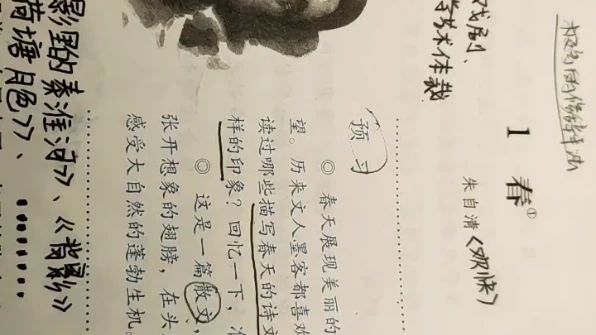 修辞手法
1 春①
朱自清《欢快》
戏剧、
等艺术体裁
预习
◎ 春天展现美丽的
望。历来文人墨客都喜欢
读过哪些描写春天的诗文
样的印象？回忆一下，
◎ 这是一篇散文，
张开想象的翅膀，在头
感受大自然的蓬勃生机。
影里的秦淮河》、《背影》
荷塘月色》、……